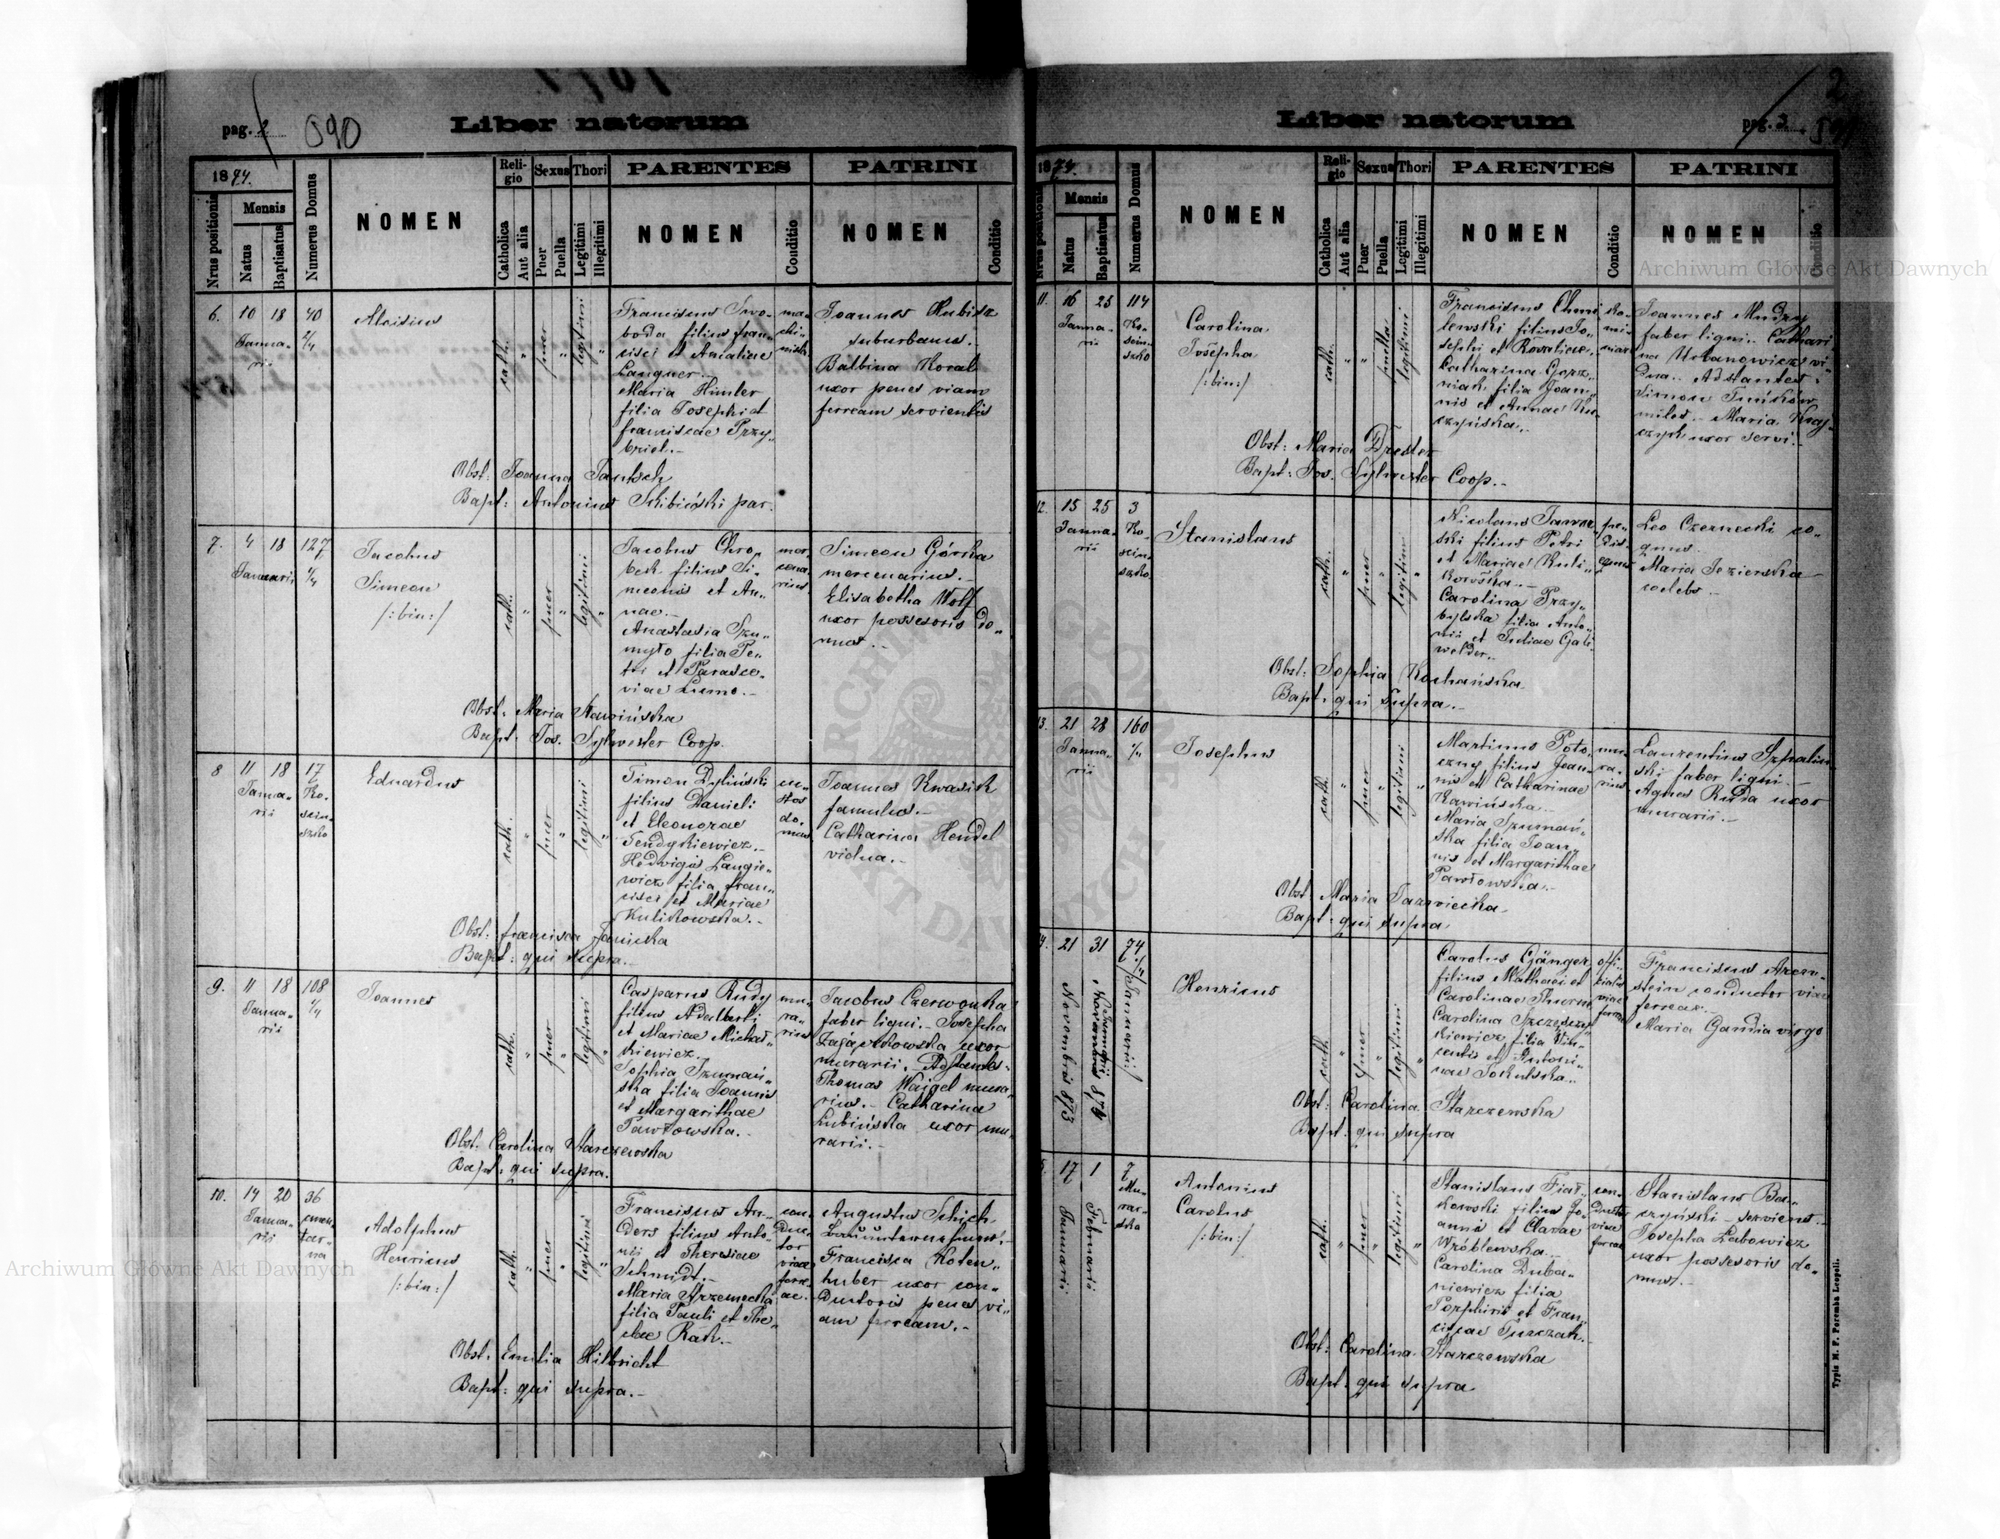 pag. 2
590
Liber natorum
1874.
Nrus positionis
Mensis
Natus
Baptisatus
Numerus Domus
NOMEN
Religio
Catholica
Aut alia
Sexus
Puer
Puella
Thori
Legitimi
Illegitimi
PARENTES
NOMEN
Conditio
PATRINI
NOMEN
Conditio
6. 10 18 40 2/4
Januarii
Aloisius
cath. " puer " legitimi "
Franciscus Swo-
boda filius Fran-
cisci et Amaliae
Langner.-
Maria Himler
filia Josephi et
Franciscae Przy-
Joannes Kubisz
suburbanus.
Balbina Koral
uxor penes viam
ferream servientis
Obst: Joanna Jantsch
Bapt: Antonius Skibiński par.
7. 4 18 127 4/4
Januarii
Jacobus
Simeon
/:bin:/
cath. " puer " legitimi "
Jacobus Chro-
filius Si-
meonis et An-
nae.-
Anastasia Szu-
myło filia Pe-
tri et Parasce-
viae
mer-
cena-
rius
Simeon Górska
mercenarius.-
Elisabetha Wolf
uxor possesoris do-
mus.-
Obst: Maria Nawińska
Bapt: Jos. Sylwester Coop.
8 11 18 17
Januarii
Ko-
sciu-
szko
Eduardus
cath. " puer " legitimi "
Simon Dyliński
filius Danieli
et Eleonorae
Fendykiewicz.-
Hedvigis Langie-
wicz filia Fran-
cisci et Mariae
Kulikowska.-
cu-
stos
do-
mus
Joannes Kwasik
famulus.-
Catharina Hendel
vidua.-
Obst: Francisca Janicka
Bapt: qui supra.-
9. 11 18 108 4/4
Januarii
Joannes
cath. " puer " legitimi "
Casparus Rudy
filius Adalberti
et Mariae Michał-
kiewicz.-
Sophia Szumań-
ska filia Joannis
et Margarithae
Pawłowska.-
mu-
ra-
rius
Jacobus Czerwonka
faber ligni.- Josepha
uxor
murarii.- Adstantes-
Thomas Waigel mura-
rius.- Catharina
Lubińska uxor mu-
rarii.-
Obst: Carolina Starczewska
Bapt: qui supra.
10. 14 20 36
Januarii
Adolphus
Henricus
/:bin:/
cath. " puer " legitimi "
Franciscus An-
ders filius Anto-
nii et Theresiae
Schmidt.-
Maria Strzemecka
filia Pauli et The-
clae Rak.-
con-
duc-
tor
viae
ferre-
ae.-
Augustus Schich
Francisca Koten-
huber uxor con-
ductoris penes vi-
am ferream.-
Obst: Emilia Hilbricht
Bapt: qui supra.-
Liber natorum
pag. 3.
2
591
1874.
Nrus positionis
Mensis
Natus
Baptisatus
Numerus Domus
NOMEN
Religio
Catholica
Aut alia
Sexus
Puer
Puella
Thori
Legitimi
Illegitimi
PARENTES
NOMEN
Conditio
PATRINI
NOMEN
Conditio
11. 16 25 114
Januarii
Ko-
sciu-
szko
Carolina
Josepha
/:bin:/
cath. " " puella legitimi "
Franciscus Chmie-
lewski filius Jo-
sephi et Rosaliae.
Catharina Gorz-
niak filia Joan-
nis et Annae Ku-
czyńska.-
ko-
mi-
niarz
Joannes Mudry
faber ligni.. Cathari-
na Urbanowicz vi-
dua.- Adstantes:
Simon
miles.- Maria Kraj-
czyk uxor servi.-
Obst: Maria Drester
Bapt: Jos. Sylwester Coop.-
12. 15 25 3
Januarii
Ko-
sciu-
szko
Stanislaus
cath. " puer " legitimi "
Nicolaus Jawor-
ski filius Petri
et Mariae Kuli-
kowska.-
Carolina Przy-
bylska filia Anto-
nii et Juliae Gali-
wolder.-
Leo Czernecki co-
quus.
Maria Jezierska
coelebs.-
Obst: Sophia Kochańska
Bapt: qui supra.-
13. 21 28 160 4/4
Januarii
Josephus
cath. " puer " legitimi "
Martinus Poto-
czny filius Joan-
nis et Catharinae
Kawińska.-
Maria Szumań-
ska filia Joan-
nis et Margarithae
Pawłowska.-
mu-
ra-
rius
Laurentius Szpaliń-
ski faber ligni.-
Agnes Ruda uxor
murarii.-
Obst: Maria
Bapt: qui supra.
14. 21 31 74
Novembris 873
Januarii 874
Henricus
cath. " puer " legitimi "
Carolus Gänger
filius Mathaei et
Carolinae Thurm
Carolina Szczeszcz-
kiewicz filia Vin-
centii et Antoni-
nae Sokulska.-
offi-
cialis
viae
ferreae
Franciscus Aren-
stein conductor viae
ferreae.-
Maria Gandia virgo
Obst: Carolina Starczewska
Bapt: qui supra
15. 17 1 7
Januarii
Februarii
Mu-
rar-
ska
Antonius
Carolus
/:bin:/
cath. " puer " legitimi "
Stanislaus Fiał-
kowski filius Jo-
annis et Clarae
Wróblewska.-
Carolina Duba-
niewicz filia
Porphirii et Fran-
ciscae Turczak.-
con-
ductor
viae
ferreae
Stanislaus Ba-
czyński - serviens.-
Josepha Labowicz
uxor possesoris do-
mus.-
Obst: Carolina Starczewska
Bapt: qui supra
Typis M. F. Poremba Leopoli.
Archiwum Główne Akt Dawnych
Archiwum Główne Akt Dawnych
ARCHIWUM GŁÓWNE AKT DAWNYCH